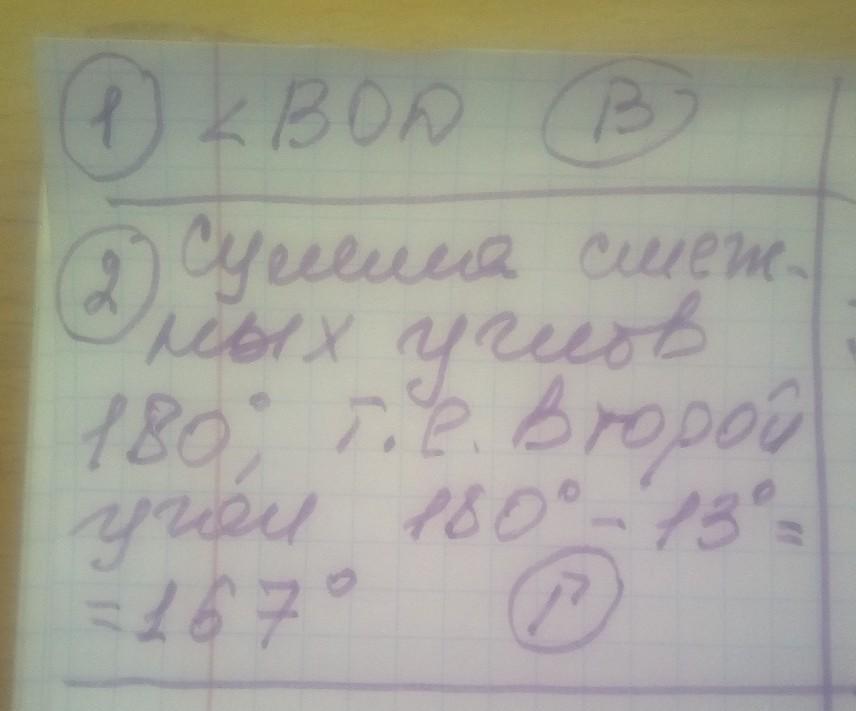 1 <BOD В
2 Сумма смеж-
ных углов
180°, т.е. второй
угол 180° - 13° =
= 167° Г